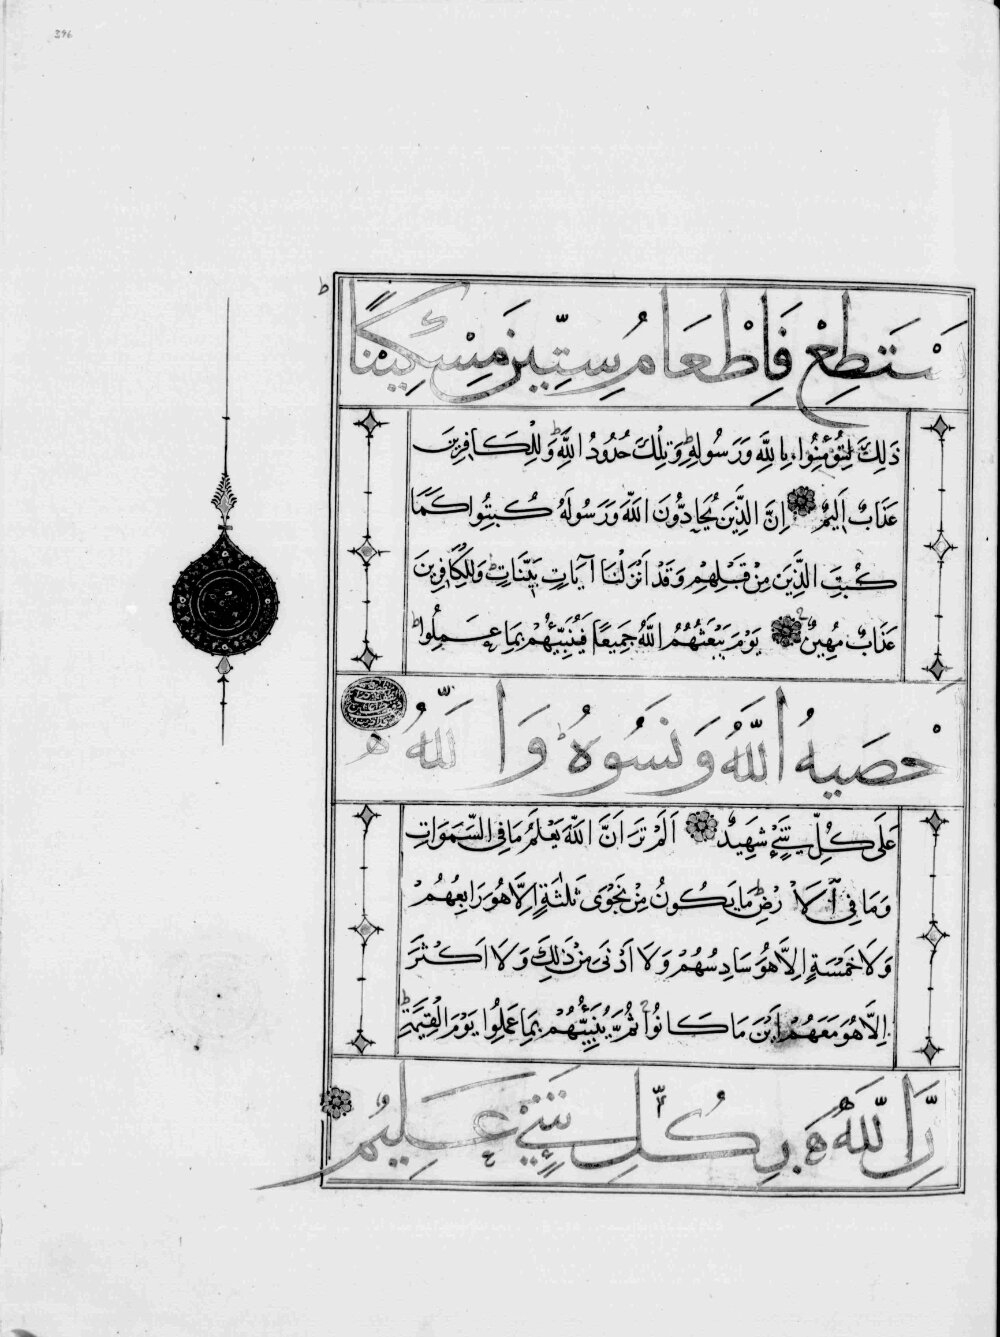 396
ط
يَسْتَطِعْ فَاِطْعَامُ سِتِّينَ مِسْكِينًا
ذٰلِكَ لِتُؤْمِنُوا بِاللّٰهِ وَرَسُولِهِ ط وَتِلْكَ حُدُودُ اللّٰهِ ط وَلِلْكَافِرِينَ
عَذَابٌ اَلِيمٌ اِنَّ الَّذِينَ يُحَادُّونَ اللّٰهَ وَرَسُولَهُ كُبِتُوا كَمَا
كُبِتَ الَّذِينَ مِنْ قَبْلِهِمْ وَقَدْ اَنْزَلْنَا آيَاتٍ بَيِّنَاتٍ ط وَلِلْكَافِرِينَ
عَذَابٌ مُهِينٌ يَوْمَ يَبْعَثُهُمُ اللّٰهُ جَمِيعًا فَيُنَبِّئُهُمْ بِمَا عَمِلُوا ط
اَحْصٰيهُ اللّٰهُ وَنَسُوهُ ط وَاللّٰهُ
عَلٰى كُلِّ شَيْءٍ شَهِيدٌ اَلَمْ تَرَ اَنَّ اللّٰهَ يَعْلَمُ مَا فِي السَّمٰوَاتِ
وَمَا فِي الْاَرْضِ ط مَا يَكُونُ مِنْ نَجْوٰى ثَلٰثَةٍ اِلَّا هُوَ رَابِعُهُمْ
وَلَا خَمْسَةٍ اِلَّا هُوَ سَادِسُهُمْ وَلَا اَدْنٰى مِنْ ذٰلِكَ وَلَا اَكْثَرَ
اِلَّا هُوَ مَعَهُمْ اَيْنَ مَا كَانُوا ثُمَّ يُنَبِّئُهُمْ بِمَا عَمِلُوا يَوْمَ الْقِيٰمَةِ ط
اِنَّ اللّٰهَ بِكُلِّ شَيْءٍ عَلِيمٌ